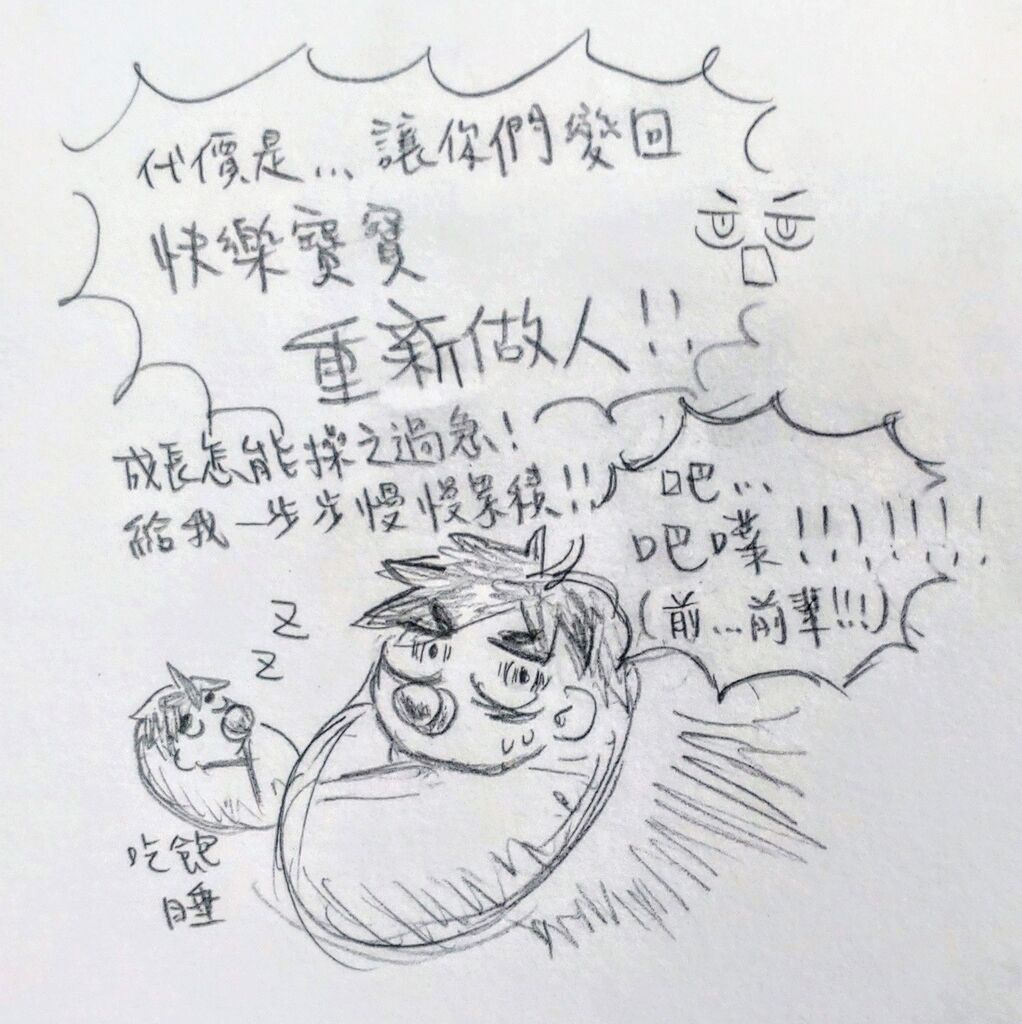 代價是...讓你們變回
快樂寶寶
重新做人!!
成長怎能操之過急!
給我一步步慢慢累積!!
吧...
吧噗!!!!!!!
(前...前輩!!!)
z
z
吃飽
睡